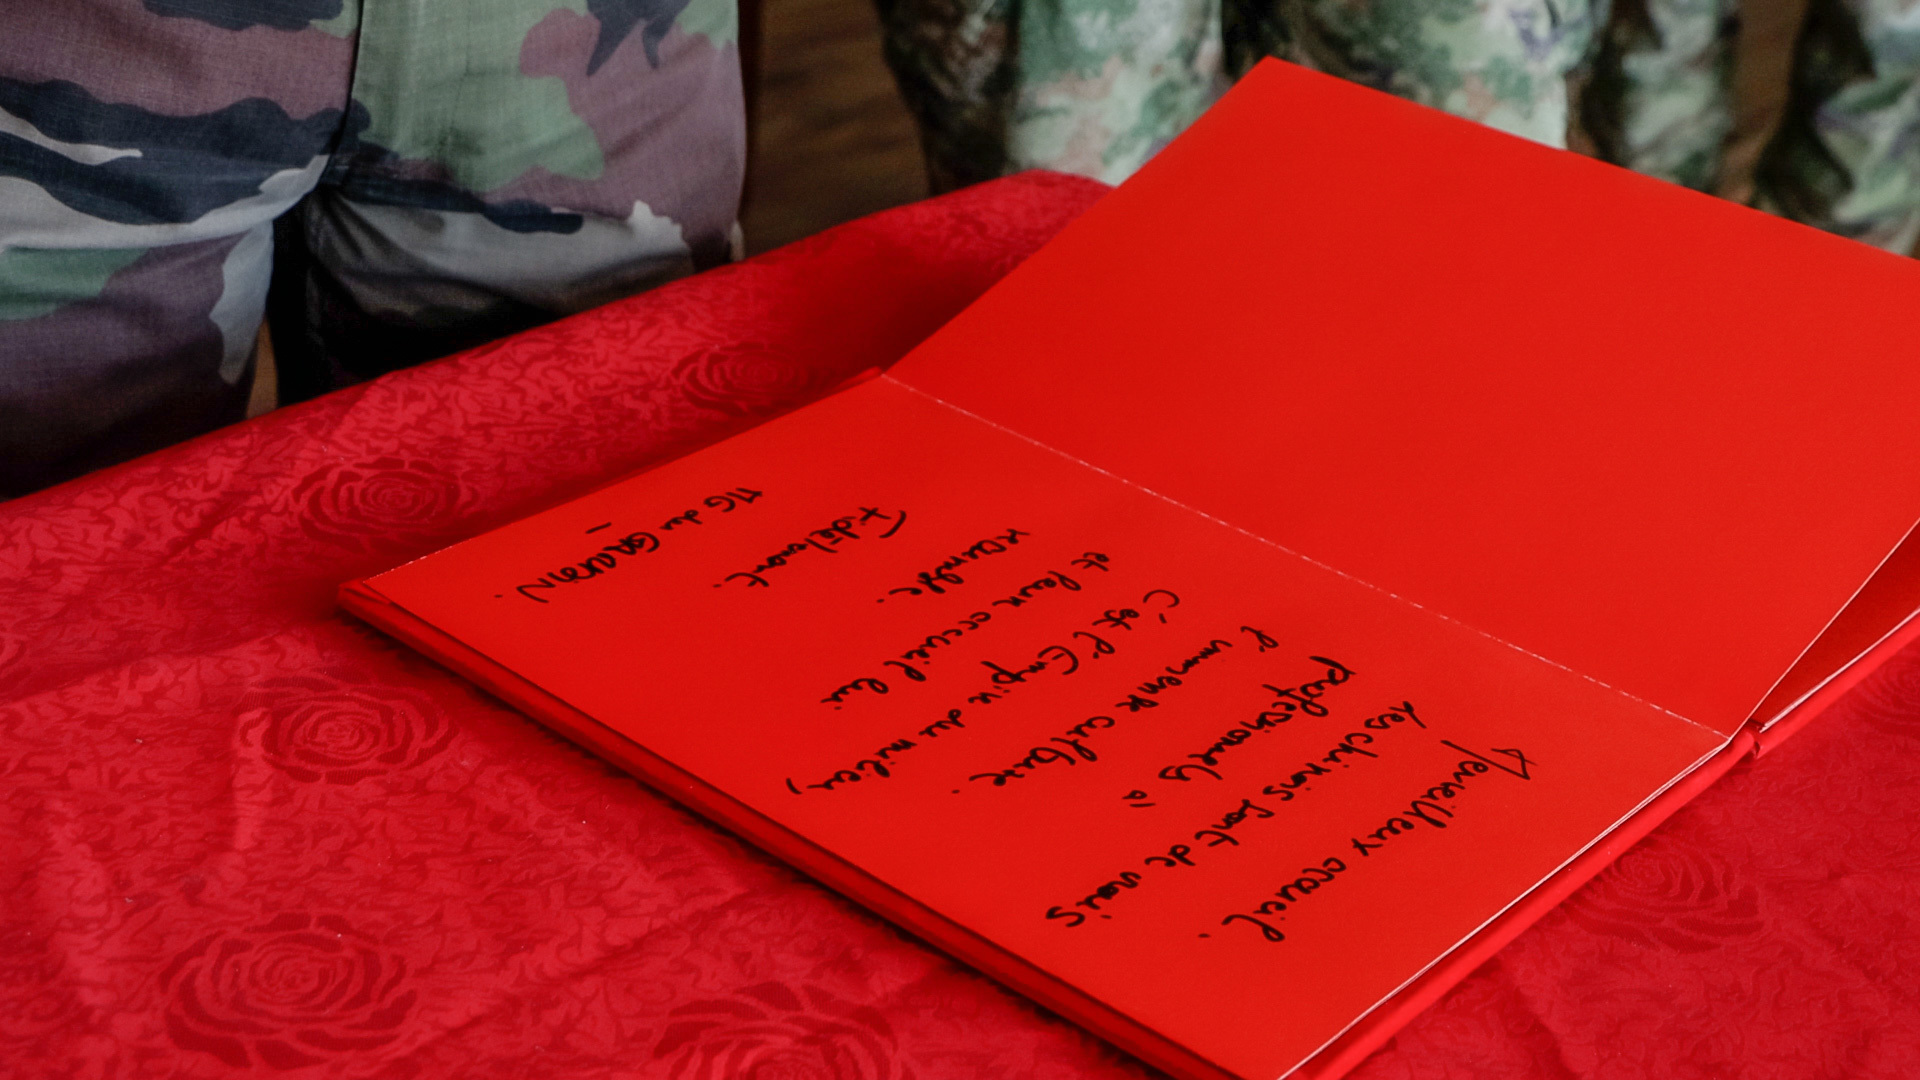 Merveilleux accueil.
Les chinois sont de vrais
professionnels à
l'immense culture.
C'est l'Empire du milieu,
et leur accueil lui
ressemble.
Fidèlement.
MG du